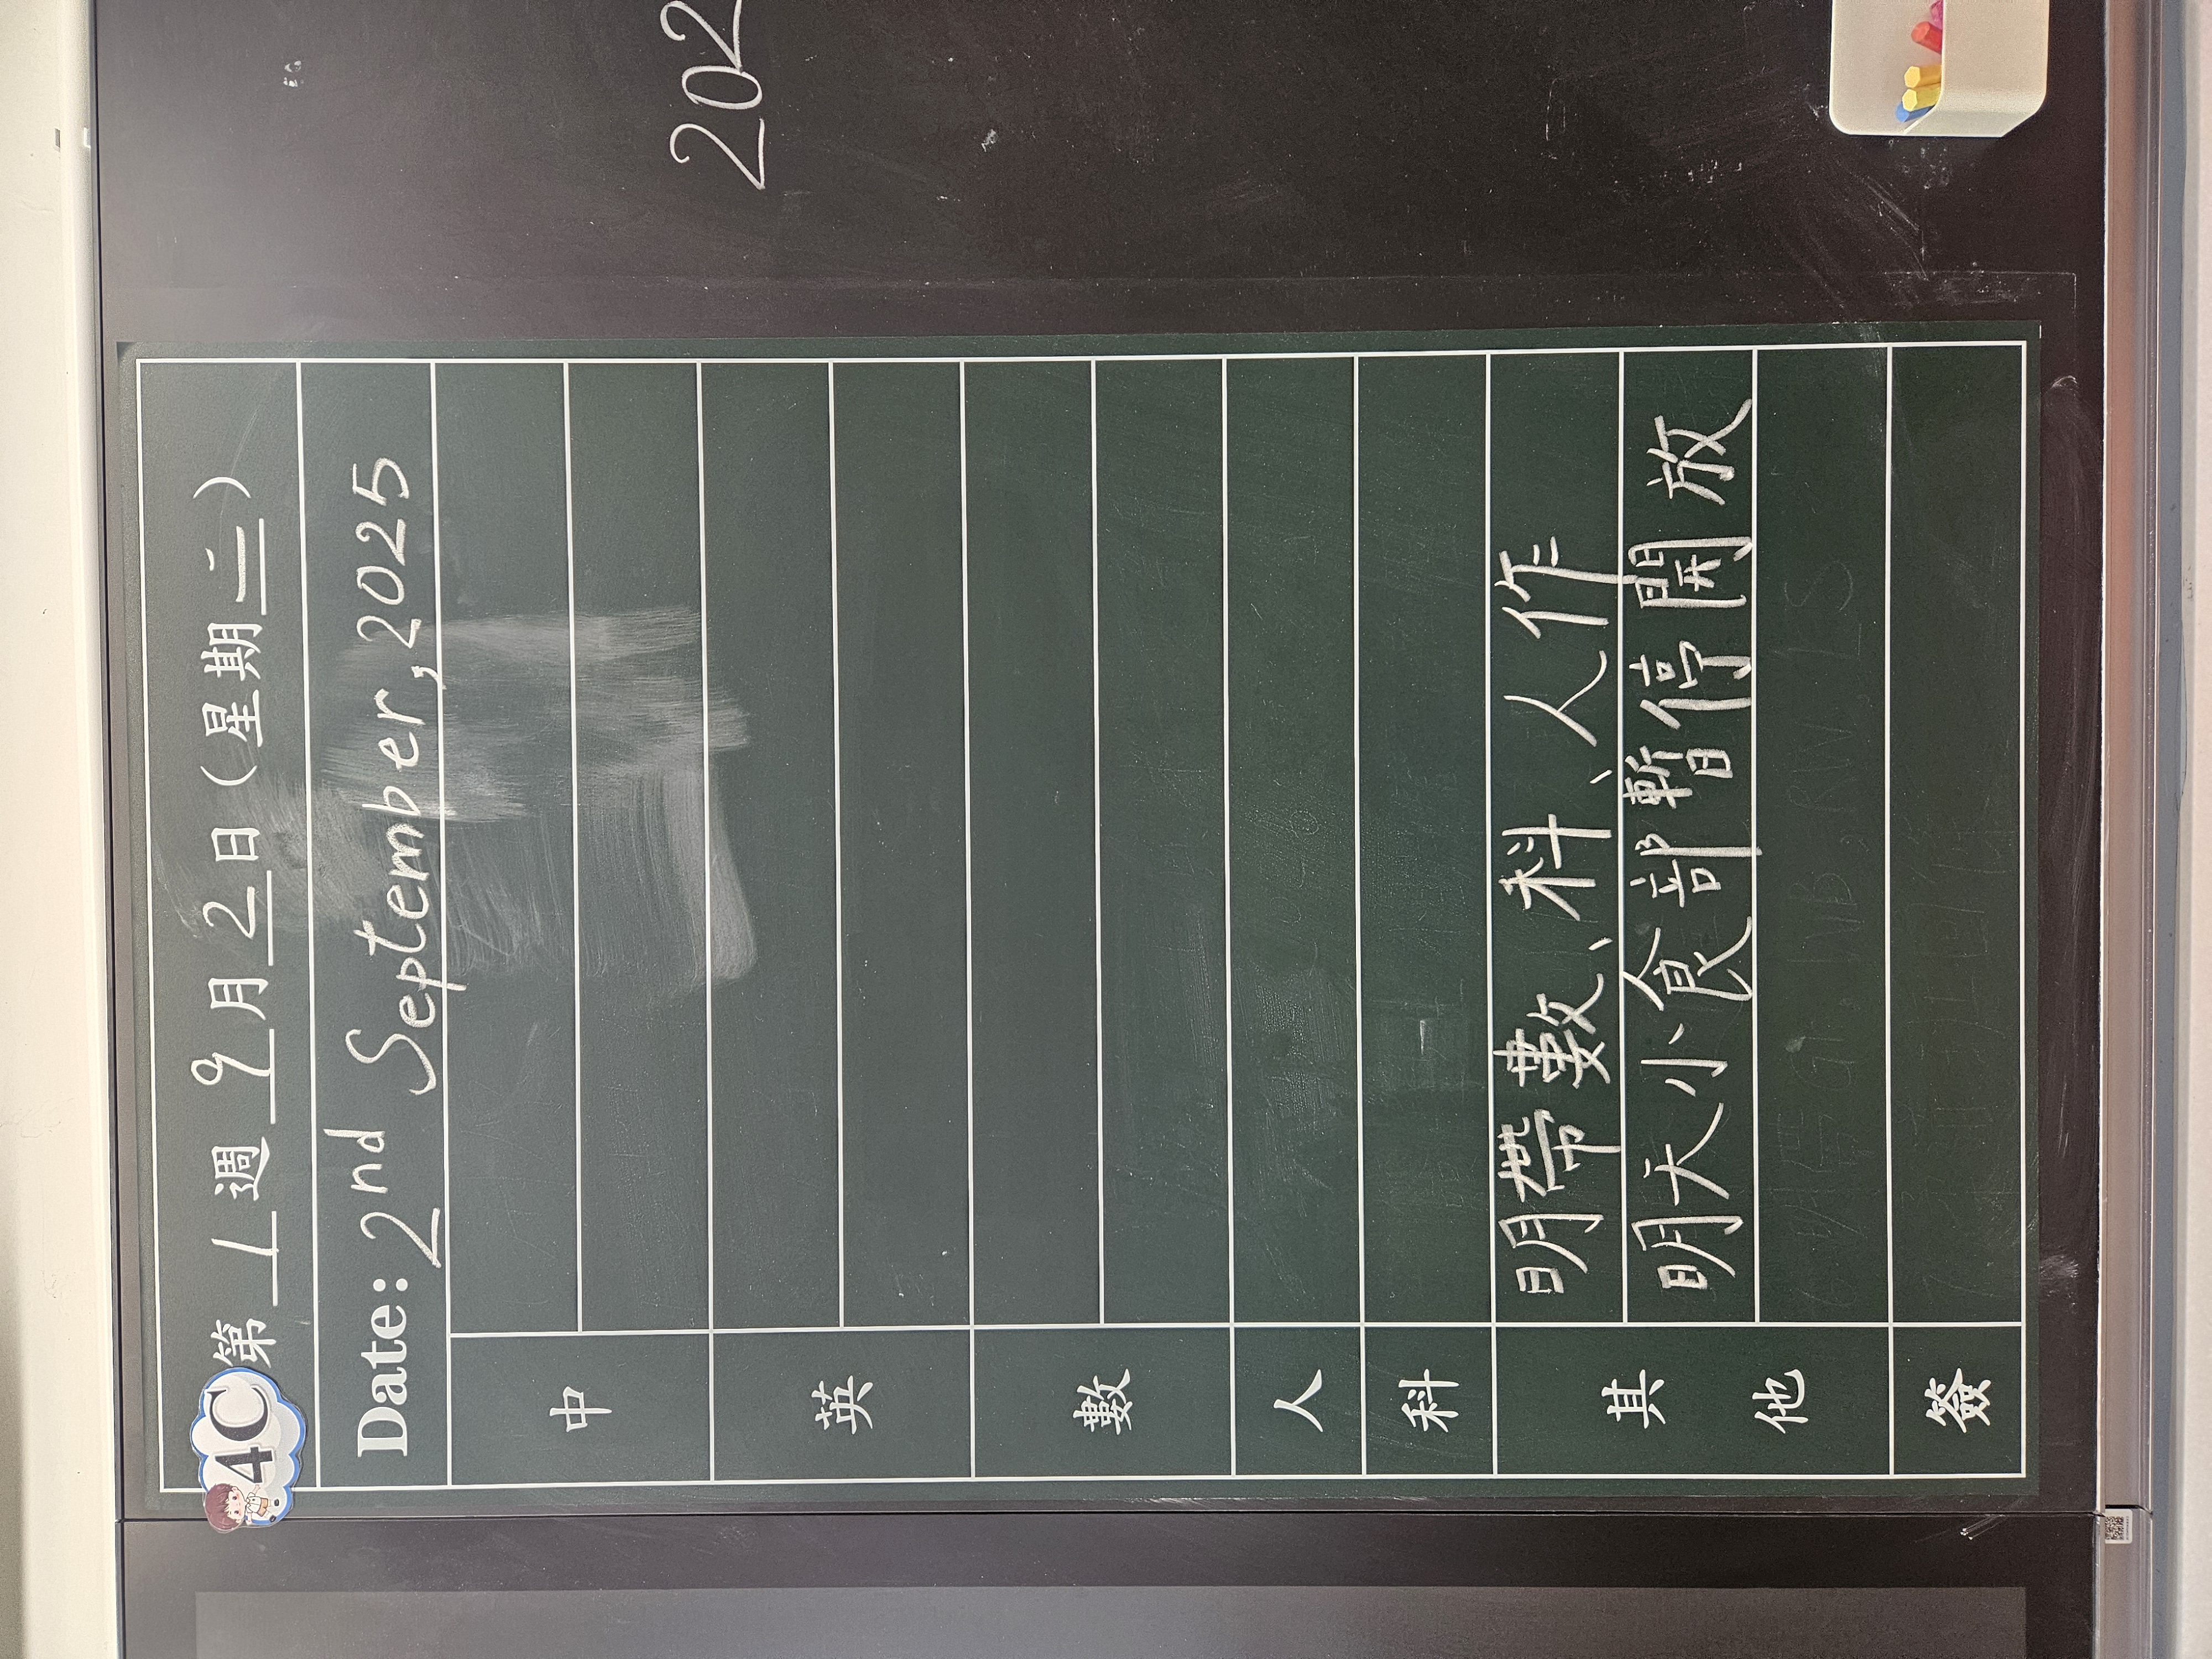 202
4C
第 1 週 9 月 2 日 (星期二)
Date: 2nd September, 2025
中
英
數
人
科
其他
明帶數、科、人作
明天小食部暫停開放
簽